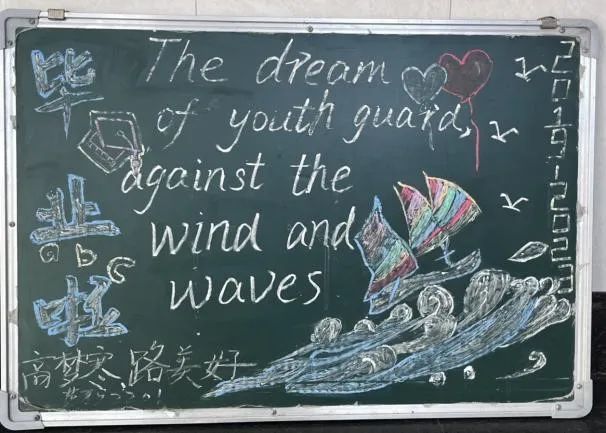 毕业啦
The dream
of youth guard,
against the
wind and
waves
abc
高梦寒 路美好
2019-2022